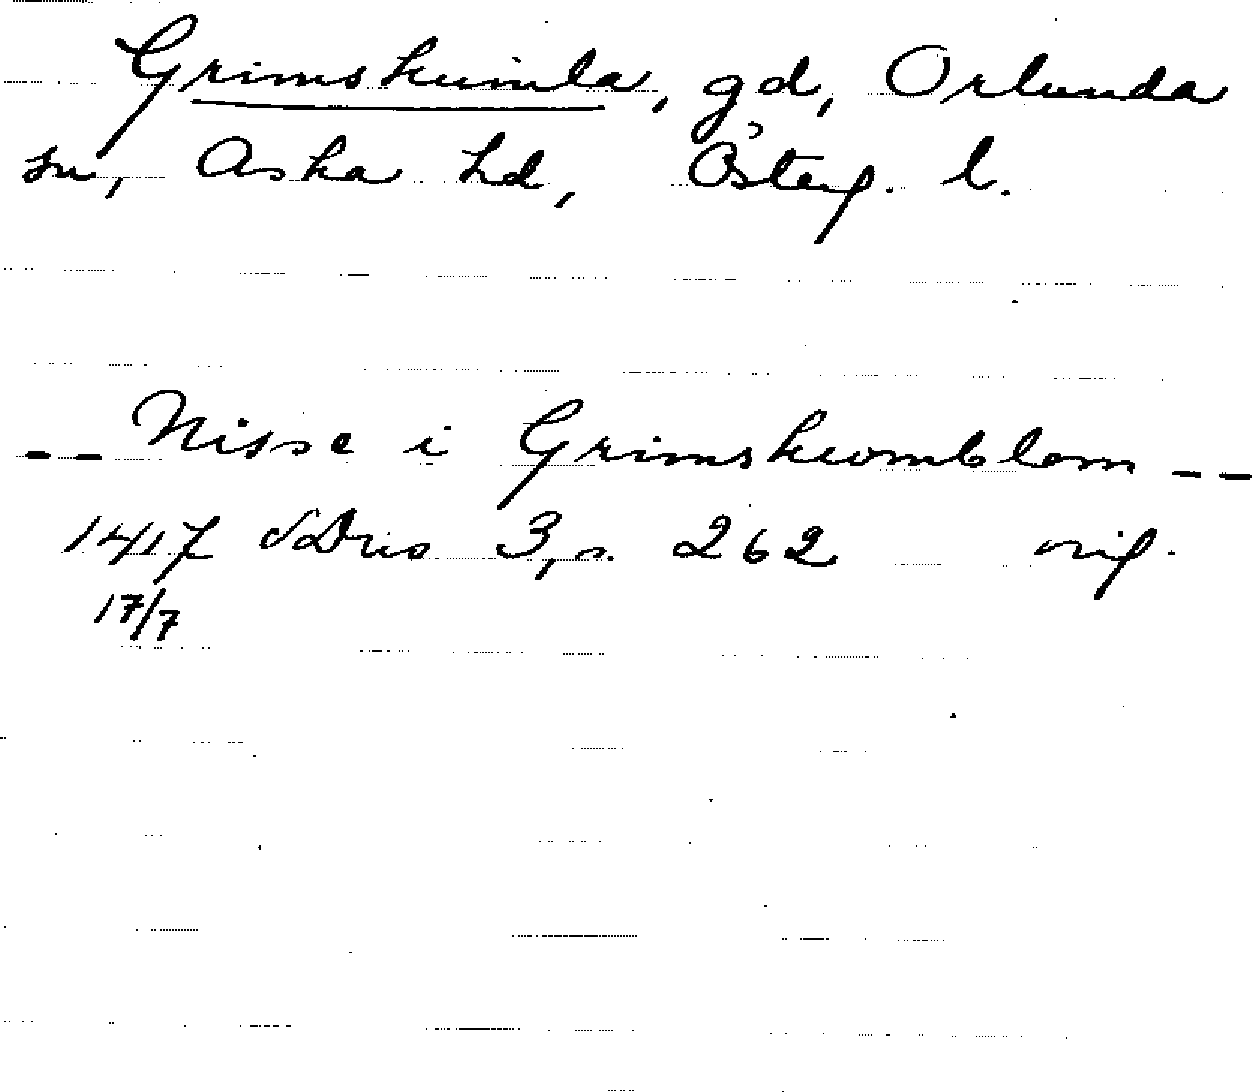 Grimskumla, gd, Orlunda
sn, Aska hd, Österg. l.
-- Nisse i Grimskwmblom --
1417 SDns 3, s. 262 orig.
17/7